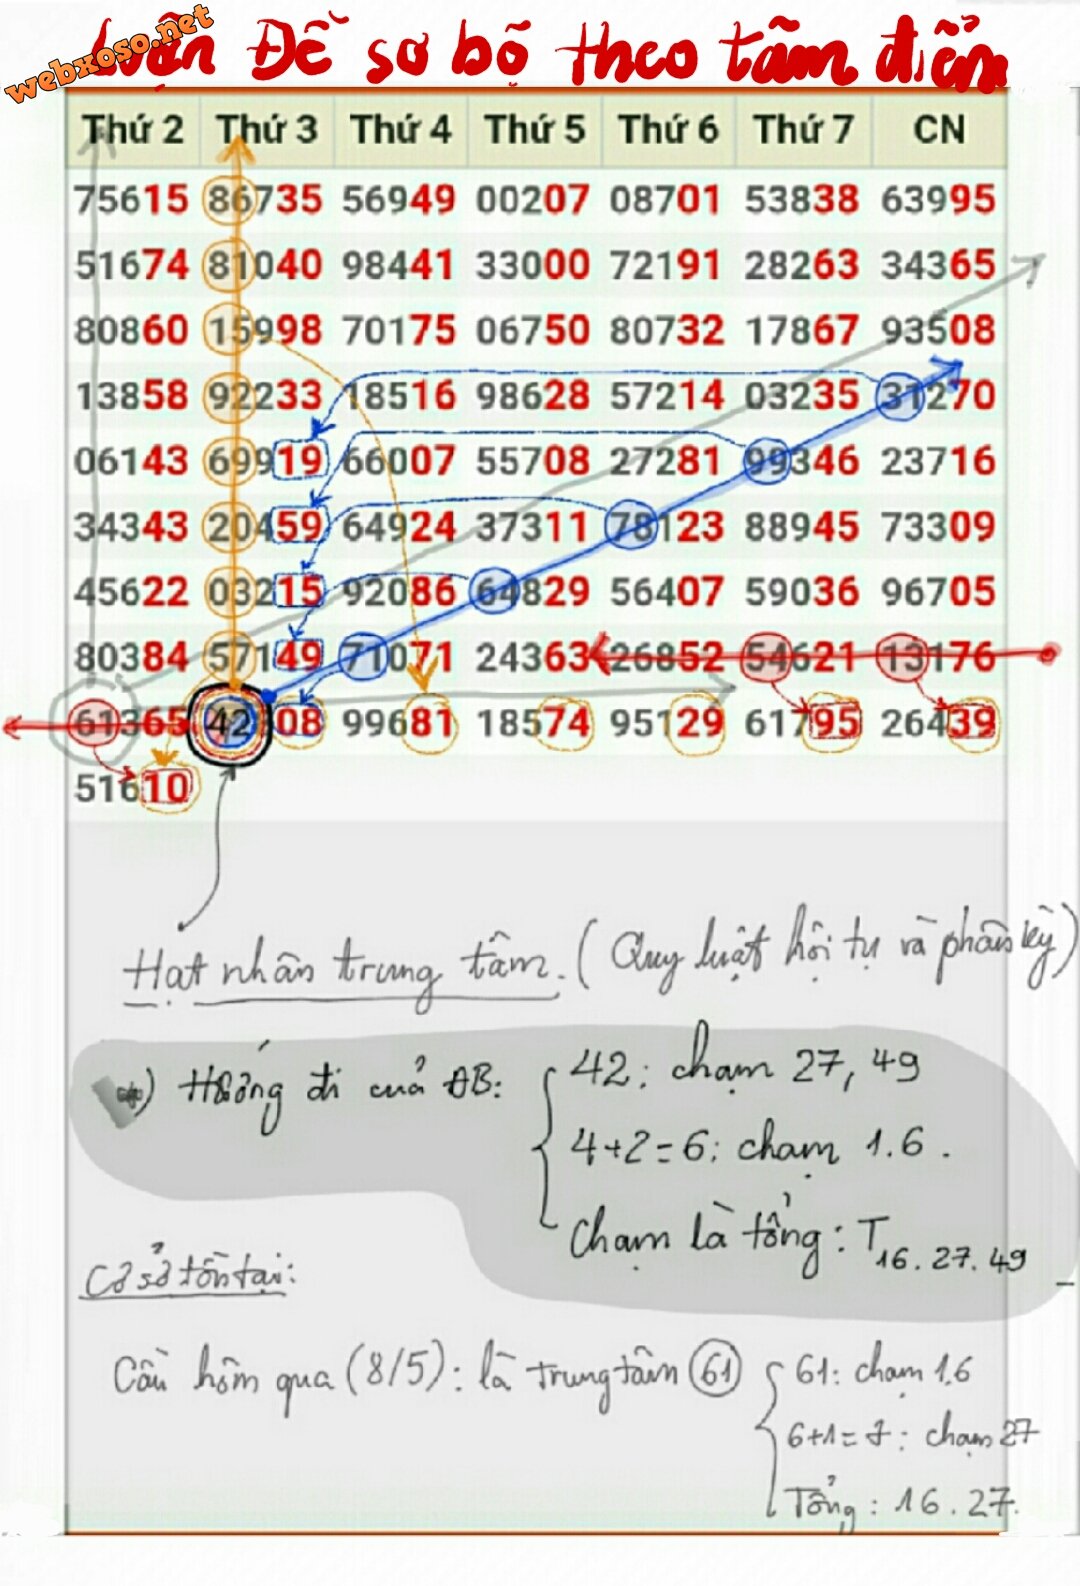 webxoso.net
Luận Đề sơ bộ theo tâm điểm
Thứ 2 Thứ 3 Thứ 4 Thứ 5 Thứ 6 Thứ 7 CN
75615 86735 56949 00207 08701 53838 63995
51674 81040 98441 33000 72191 28263 34365
80860 15998 70175 06750 80732 17867 93508
13858 92233 18516 98628 57214 03235 31270
06143 69919 66007 55708 27281 99346 23716
34343 20459 64924 37311 78123 88945 73309
45622 03215 92086 64829 56407 59036 96705
80384 57149 71071 24363 26852 54621 13176
61365 42 08 99681 18574 95129 61795 26439
51610
Hạt nhân trung tâm. (Quy luật hội tụ và phân kỳ)
) Hướng đi của ĐB: 42: chạm 27, 49
4+2=6: chạm 1.6.
Chạm là tổng: T16.27.49
Cơ sở tồn tại:
Cầu hôm qua (8/5): là trung tâm 61 61: chạm 1.6
6+1=7: chạm 27
Tổng: 16.27.